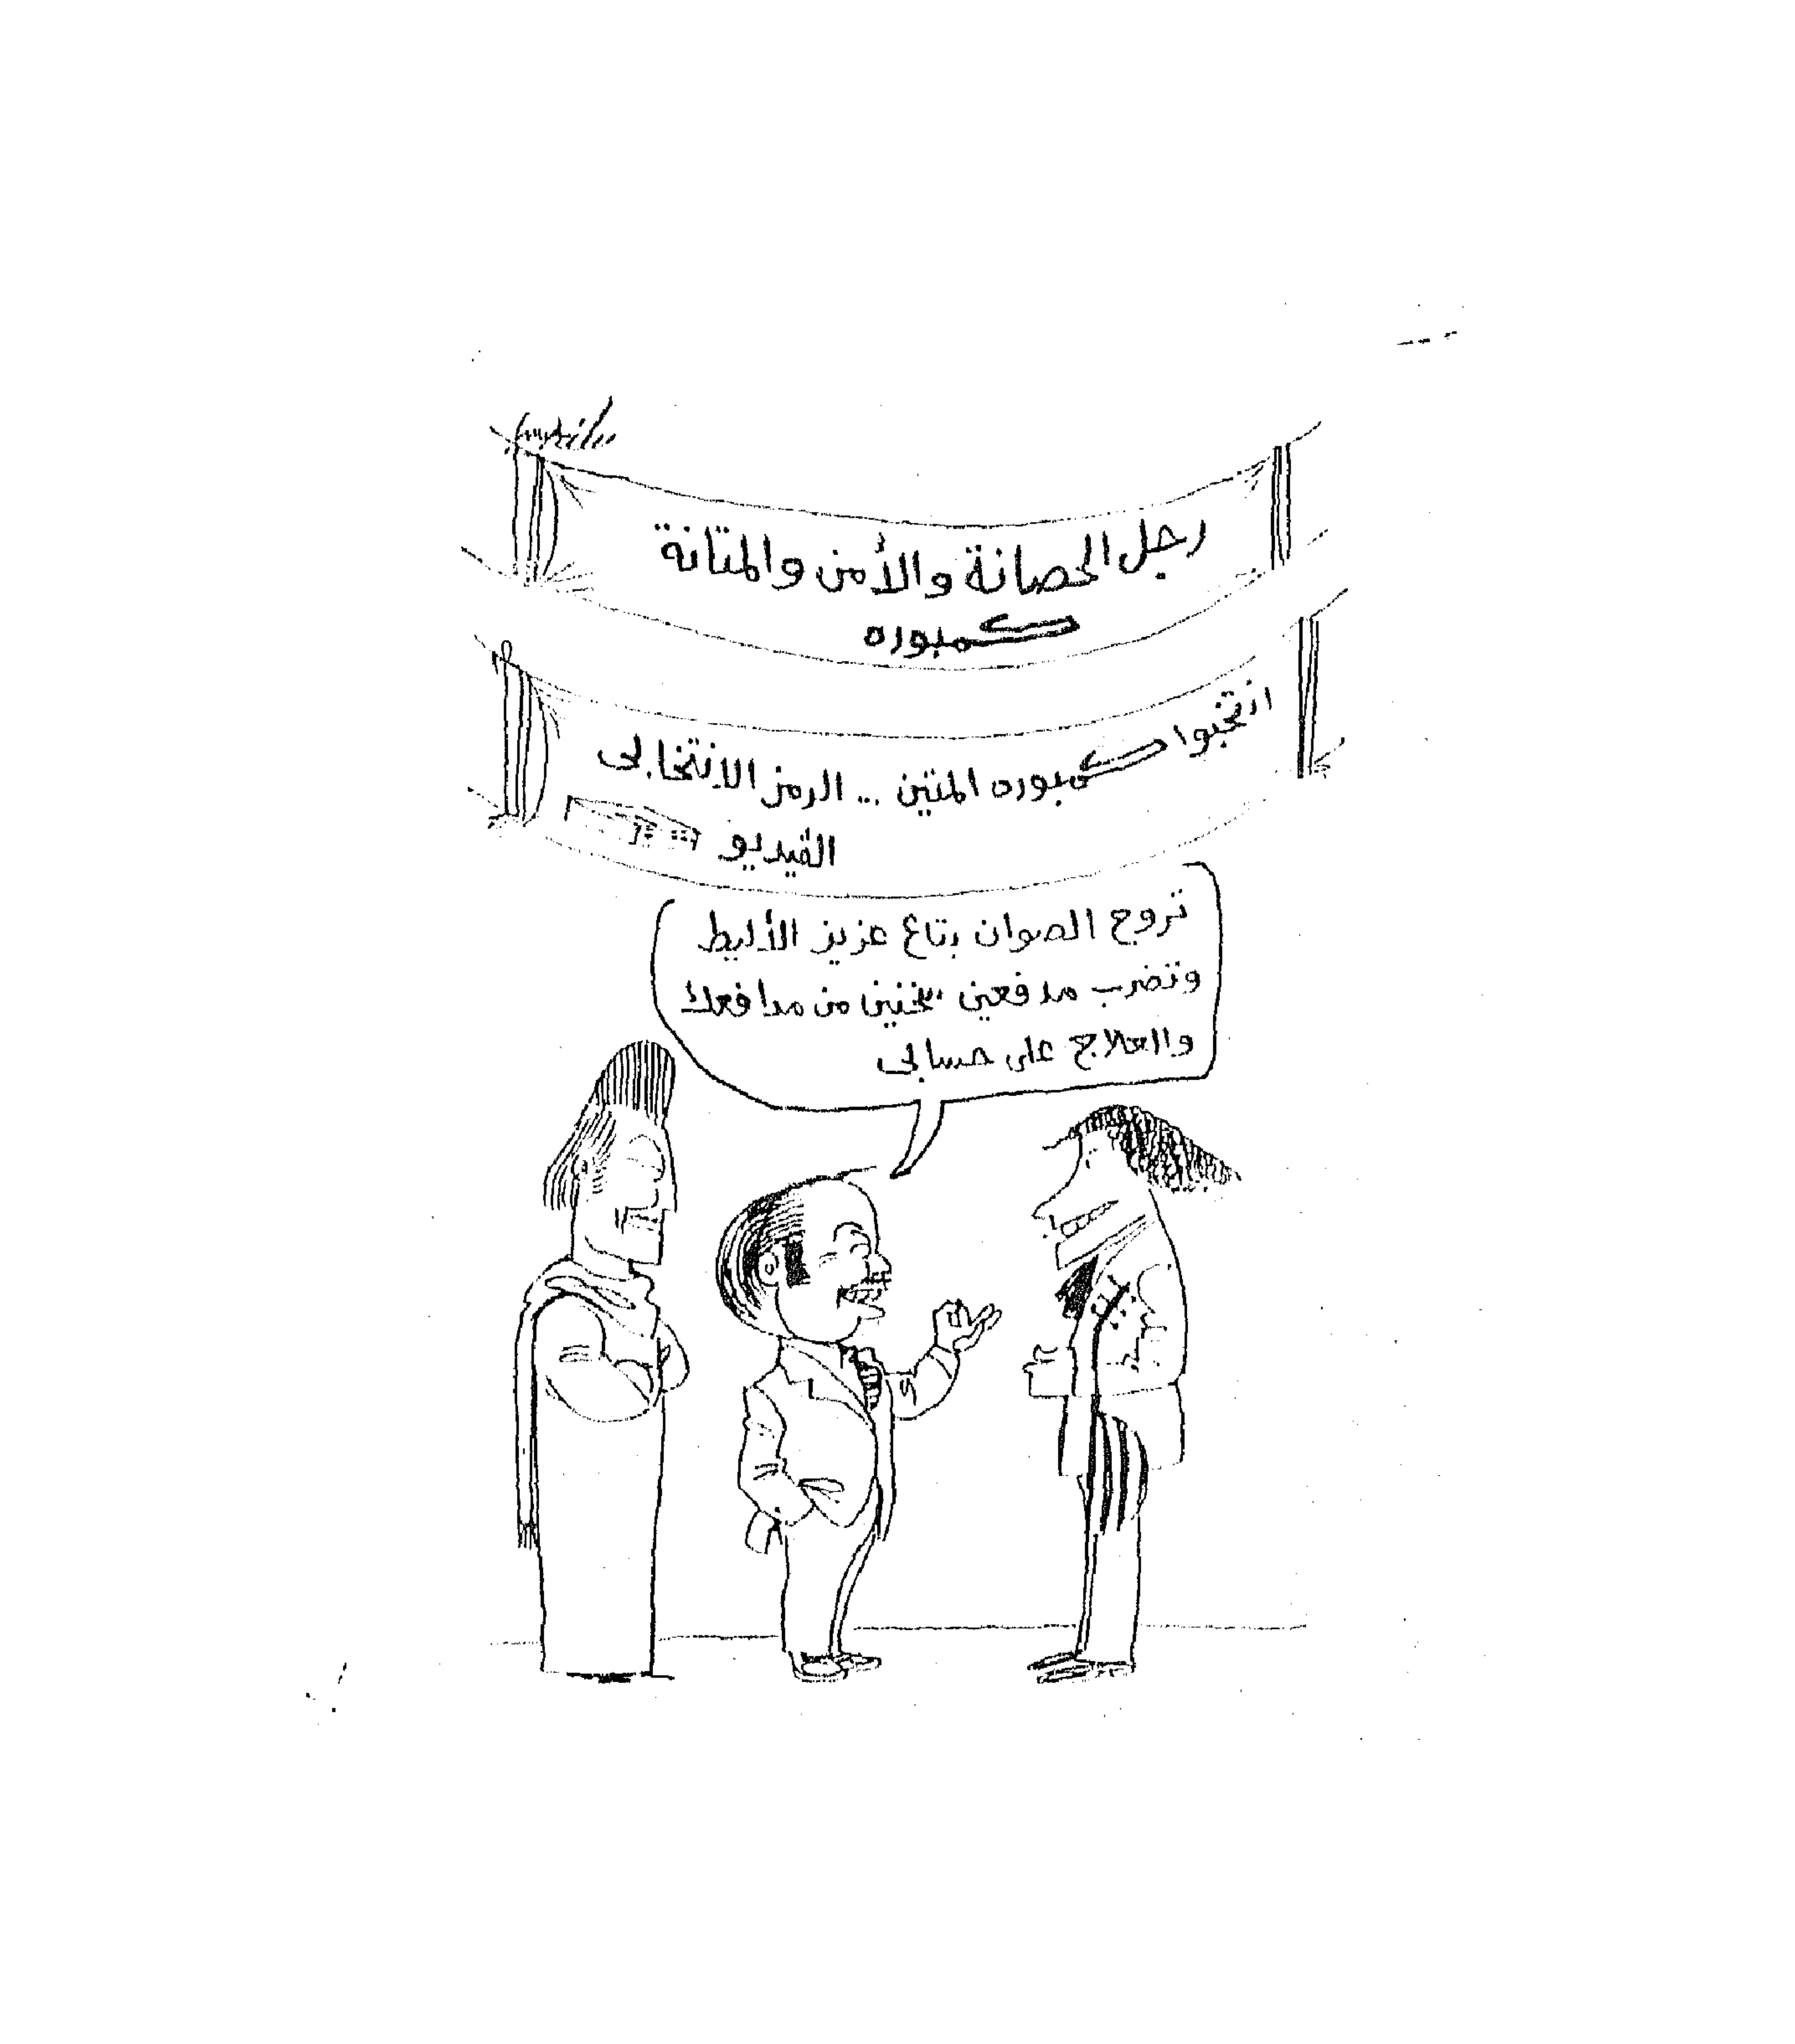 رجل الحصانة والأمن والمتانة
كمبوره
انتخبوا كمبوره المتين ... الرمز الانتخابى
الڤيديو
تروح الصوان بتاع عزيز الأليط
وتضرب مدفعين سخنين من مدافعك
والعلاج على حسابى